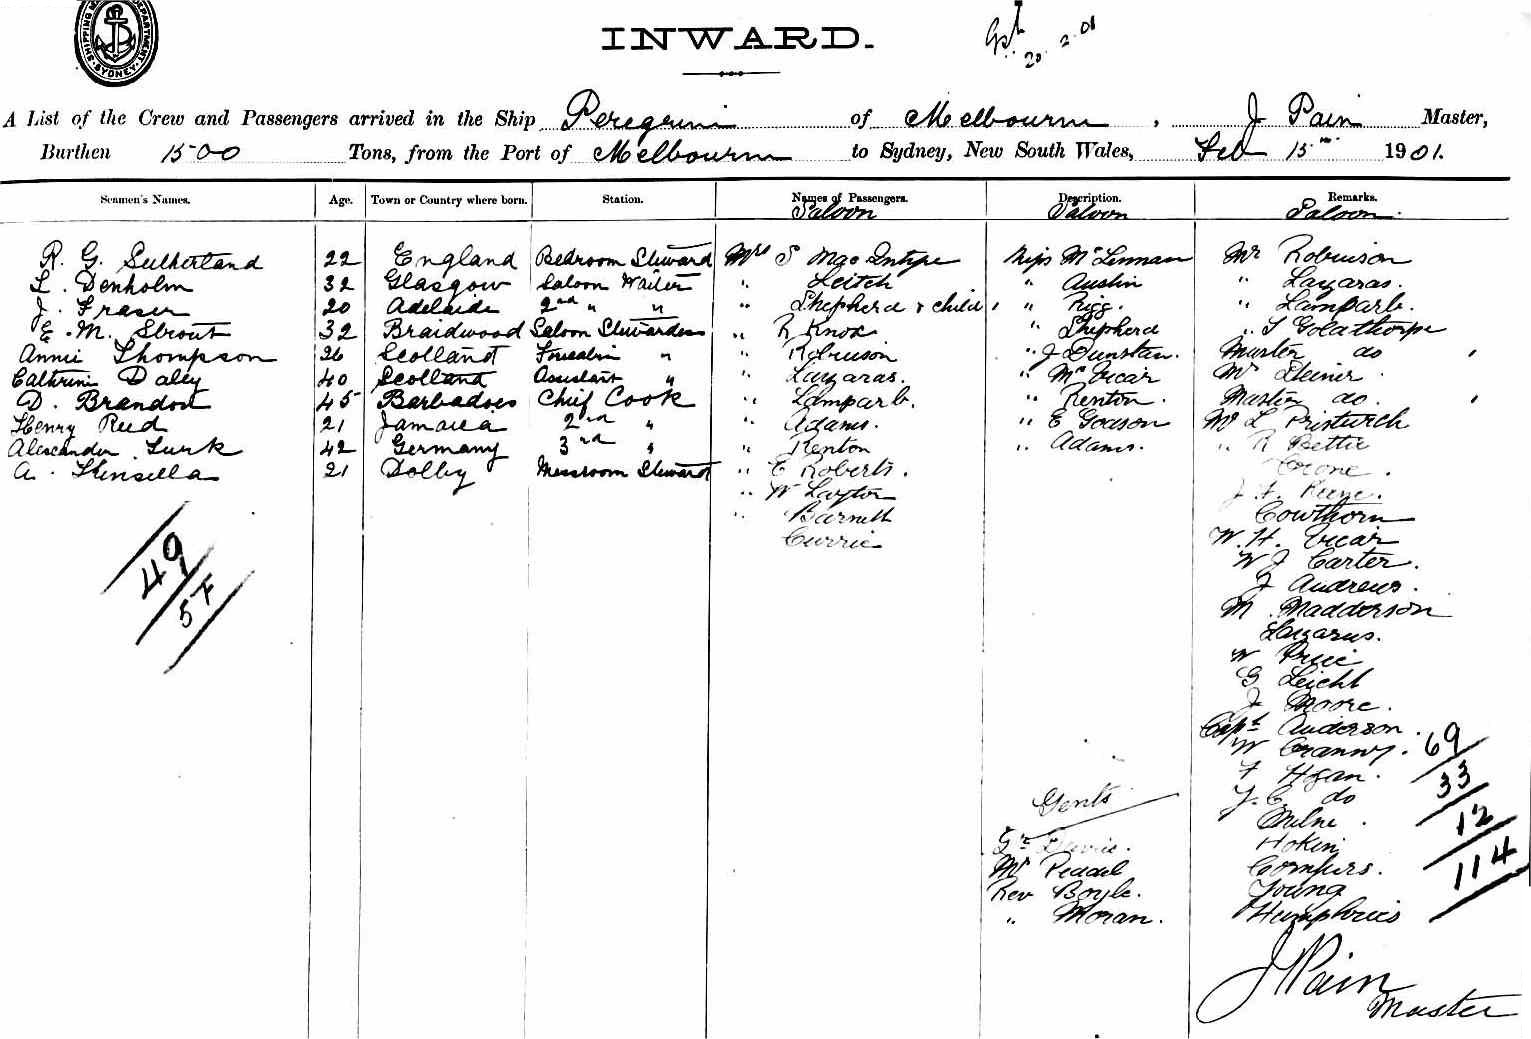 SHIPPING MASTER'S DEPARTMENT SYDNEY
INWARD.
20.2.01
A List of the Crew and Passengers arrived in the Ship Peregrine of Melbourne, J Pain Master,
Burthen 1500 Tons, from the Port of Melbourne to Sydney, New South Wales, Feb 15 1901.
Seamen's Names. Age. Town or Country where born. Station. Names of Passengers. Description. Remarks.
Saloon Saloon Saloon.
R. G. Sutherland 22 England Bedroom Steward Mrs S MacIntyre Miss McLinnan Mr Robinson
L. Denholm 32 Glasgow Saloon Waiter " Leitch " Austin " Lazaras.
J. Fraser 20 Adelaide 2nd " " " Shepherd & child " Rigg. " Lamparb.
E. M. Strout 32 Braidwood Saloon Stewardess " R Knox " Shepherd " T Golathorpe
Annie Thompson 26 Scotland Forecabin " " Robinson " J Dunstan. Master do
Cathrine Daley 40 Scotland Assistant " " Lazaras. " McVicar Mr Steiner.
D. Brandon 45 Barbadoes Chief Cook " Lamparb. " Renton Master do.
Henry Reed 21 Jamaica 2nd " " Adams. " E Godson Mr L
Alexander Turk 42 Germany 3rd " " Renton " Adams. " R Bettie
A. Kinsella 21 Dolley Messroom Steward " E Roberts. Crone.
" W Layton
" Barnett Cowthorn
Currie W. H. Vicar
W J Carter.
J Andrews.
M. Madderson
Lazarus.
W Price
G Leicht
J Moore.
Capt Anderson.
W Cranny.
F Hgan.
J. C. do
Gents
Milne.
Hokin
Mr Peadel Compers.
Rev Boyle. Young
" Moran. Humphries
49
57
69
33
12
114
J Pain
Master